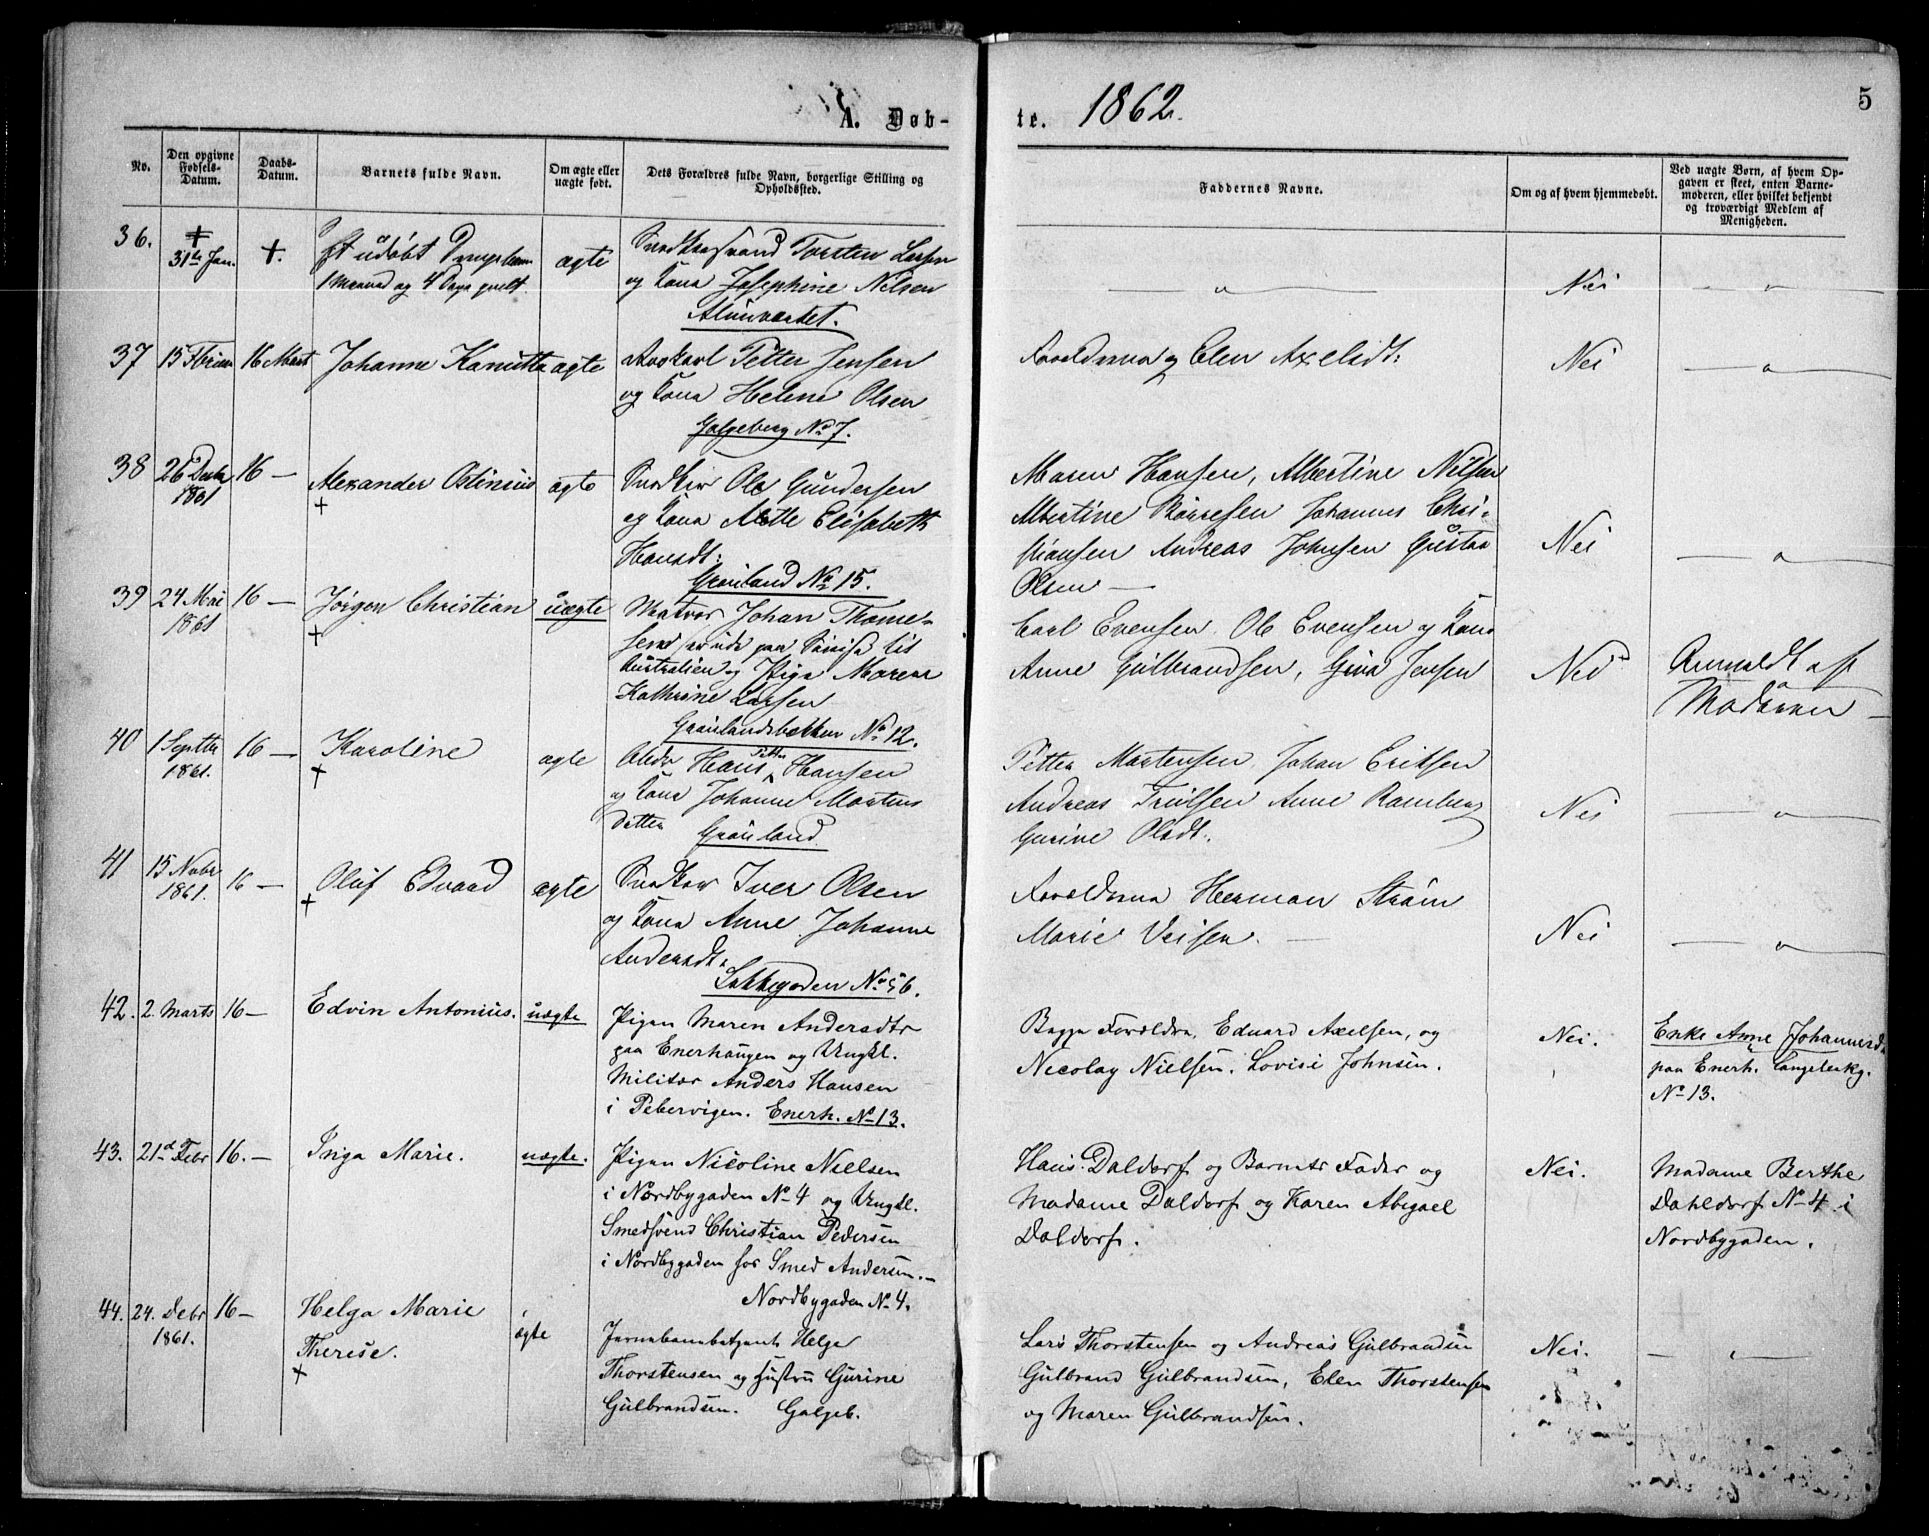 A. Døb-
te. 1862.
5
No.
Den opgivne
Fødsels-
Datum.
Daabs-
Datum.
Barnets fulde Navn.
Om ægte eller
uægte født.
Dets Forældres fulde Navn, borgerlige Stilling og
Opholdssted.
Faddernes Navne.
Om og af hvem hjemmedøbt.
Ved uægte Børn, af hvem Op-
gaven er skeet, enten Barne-
moderen, eller hvilket bekjendt
og troværdigt Medlem af
Menigheden.
36.
31te Jan.
+.
Et udøbt
1 Maaned og 4 Dage gvelt.
ægte
Torsten Larsen
og Kona Josephine Nilsen
Alunværket.
Nei
37
15
16 Marts
Johanne
ægte
Petter Jensen
og Kona Helene Olsen
Galgeberg No 7.
Forældrena og Elen Axelsdt:
Nei
38
26 Decbr
1861
16 —
Alexander
+
ægte
Snedker Ole Gundersen
og Kona Elisabeth
Hansdt:
Grønland No 15.
Maren Hansen, Albertine Nilsen
Albertine Johannes Chri-
stiansen Andreas Johnsen Gustav
Olsen —
Nei
39
24 Mai
1861
16 —
Jørgen Christian
+
uægte
Matros Johan Thome-
sen
Australien og Pige Maren
Kathrine Larsen
Grønlandsbakken No 12.
Carl Evensen Ole Evensen og Kona
Anne Gulbrandsen, Gina Jensen
Nei
Anmeldt af
Moderen —
40
1 Septbr
1861.
16 —
Karoline
+
ægte
Petter
Hans Hansen
og Kona Johanne Martins
datter
Grønland
Petter Martensen Johan Eriksen
Andreas Trulsen Anne Ramberg
Gurine Olsdt.
Nei
41
15 Novbr
1861.
16 —
Oluf Edvard
+
ægte
Snedker Iver Olsen
og Kona Anne Johanne
Andersdt.
Lakkegaden No 56.
Forældrena Herman Strøm
Marie
Nei
42.
2. Marts
16 —
Edvin Antonius.
uægte
Pigen Maren Andersdtr
paa Enerhaugen og Ungkl.
Militær Anders Hansen
i Pebervigen. Enerh. No 13.
Begge Forældre, Eduard Axelsen, og
Nicolay Nielsen. Lovise Johnsen.
Nei.
Enke Anne Johannesd
paa Enerh. Langelerkg.
No 13.
43.
21d Febr
16. —
Inga Marie.
uægte.
Pigen Nicoline Nielsen
i Nordbygaden No 4 og Ungkl.
Smedsvend Christian Pedersen
i Nordbygaden hos Smed Andersen. —
Nordbygaden No 4.
Hans Daldorf og Barnets Fader og
Madame Daldorf og Karen Abigael
Daldorf.
Nei.
Madame Berthe
Dahldorf No 4 i
Nordbygaden.
44.
24. Debr
1861.
16 —
Helga Marie
Therese.
+
ægte
Jernbanebetjent Helge
Thorstensen og Hustru Gurine
Gulbrandsen. Galgeb.
Lars Thorstensen og Andreas Gulbrandsen
Gulbrand Gulbrandsen, Elen Thorstensen
og Maren Gulbrandsen.
Nei.